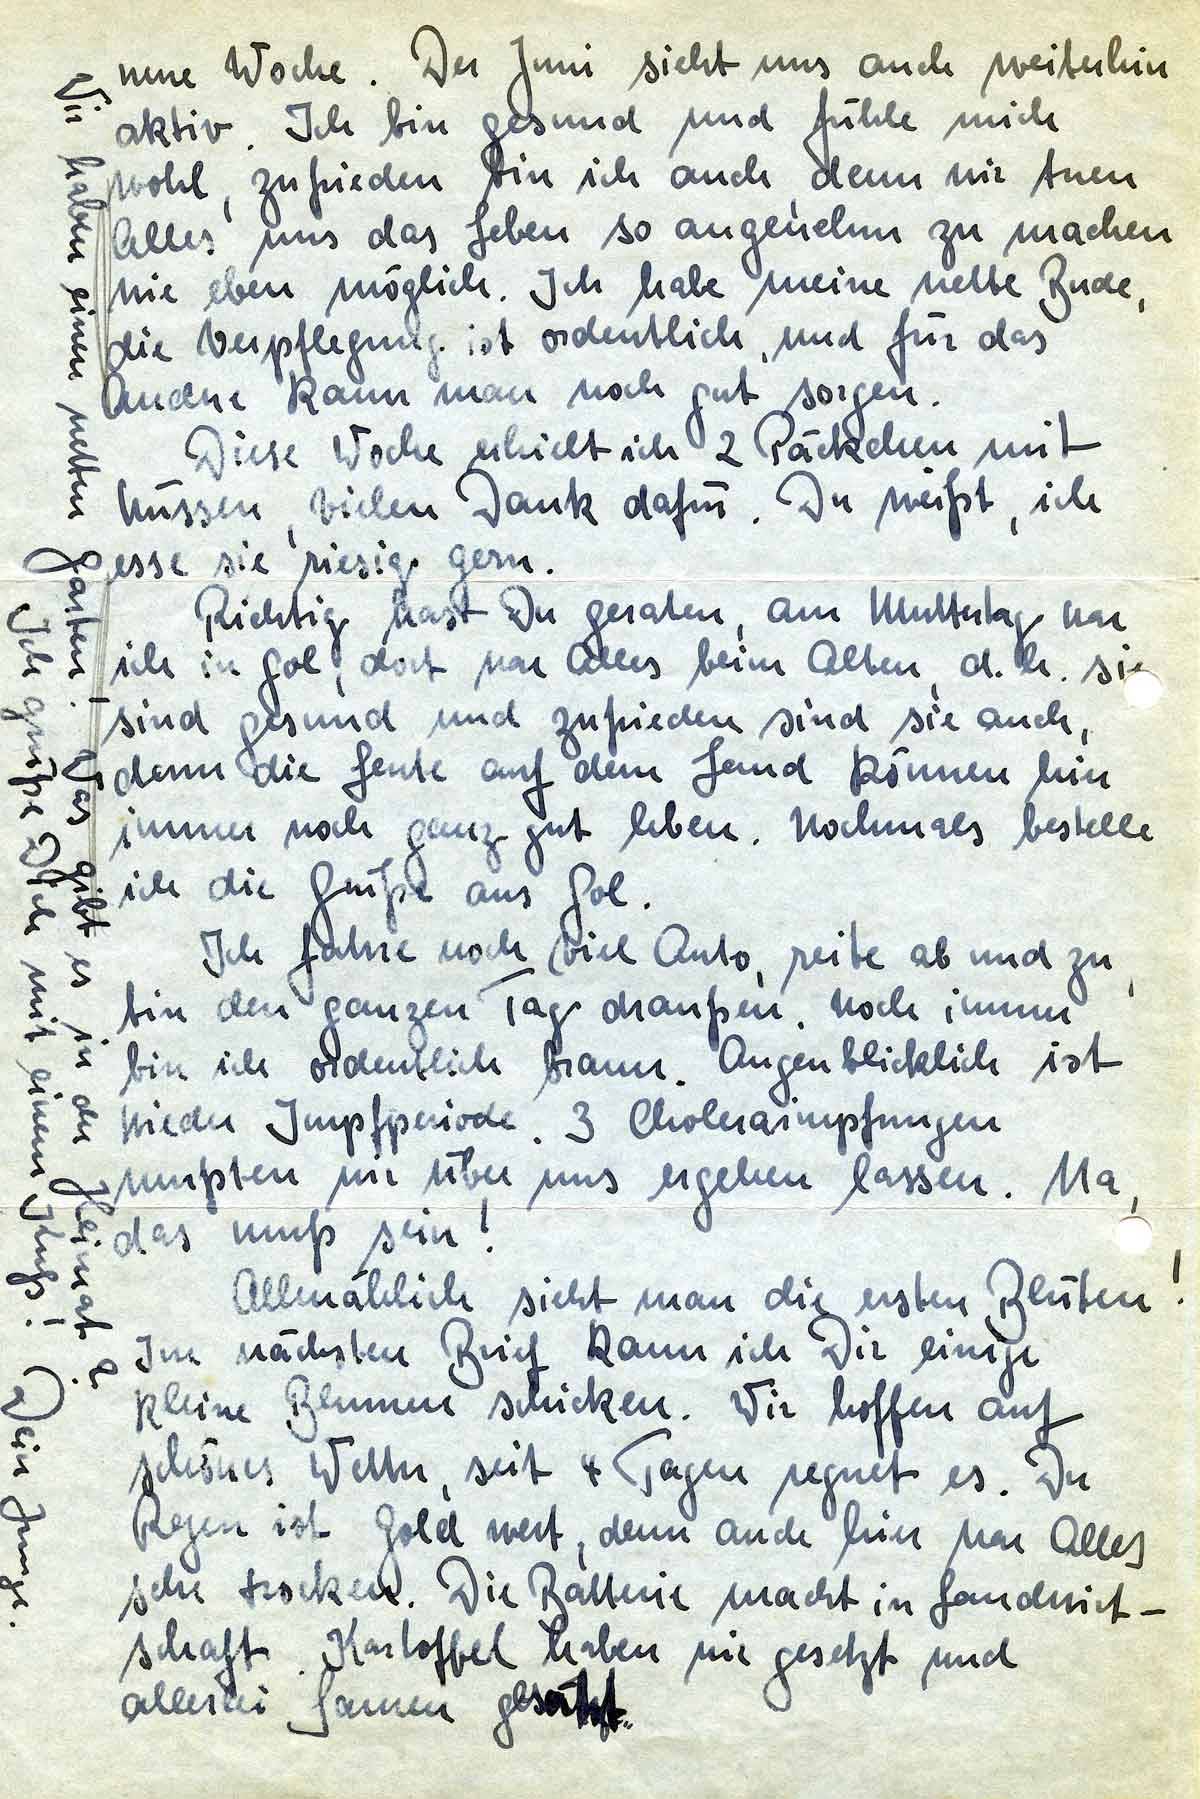 neue Woche. Der Juni sieht uns auch weiterhin
aktiv. Ich bin gesund und fühle mich
wohl, zufrieden bin ich auch, denn wir tuen
Alles uns das Leben so angenehm zu machen
wie eben möglich. Ich habe meine nette Bude,
die Verpflegung ist ordentlich, und für das
Andere kann man noch gut sorgen.
Diese Woche erhielt ich 2 Päckchen mit
Nüssen, vielen Dank dafür. Du weißt, ich
esse sie riesig gern.
Richtig hast Du geraten, am Muttertag war
ich in Gol, dort war Alles beim Alten, d.h. sie
sind gesund und zufrieden sind sie auch,
denn die Leute auf dem Land können hier
immer noch ganz gut leben. Nochmals bestelle
ich die Grüße aus Gol.
Ich fahre noch viel Auto, reite ab und zu,
bin den ganzen Tag draußen. Noch immer
bin ich ordentlich braun. Augenblicklich ist
wieder Impfperiode. 3 Choleraimpfungen
mußten wir über uns ergehen lassen. Na,
das muß sein!
Allmählich sieht man die ersten Blüten!
Im nächsten Brief kann ich Dir einige
kleine Blumen schicken. Wir hoffen auf
schönes Wetter, seit 4 Tagen regnet es. Der
Regen ist Gold wert, denn auch hier war Alles
sehr trocken. Die Batterie macht in Landwirt-
schaft. Kartoffel haben wir gesetzt und
allerlei Samen gesät.
Wir haben einen netten Garten! Was gibt es in der Heimat?
Ich grüße Dich mit einem Kuß! Dein Junge.